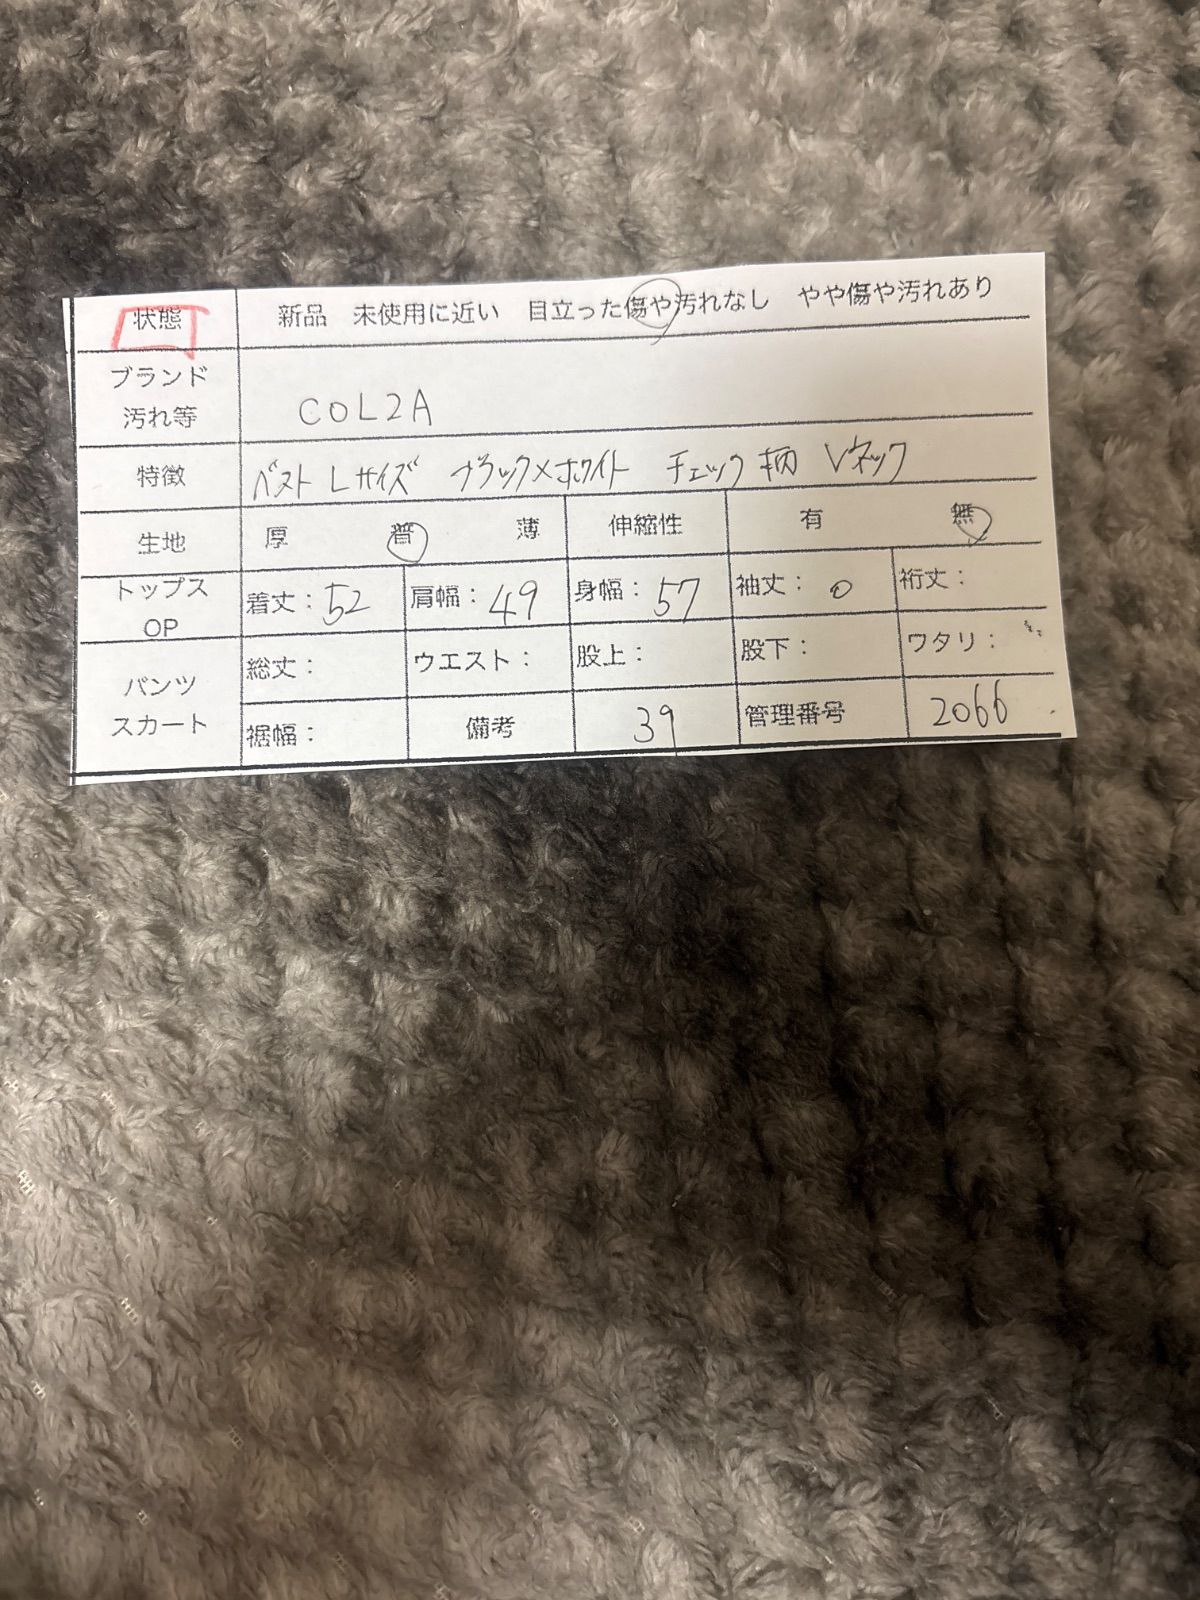 状態 新品 未使用に近い 目立った傷や汚れなし やや傷や汚れあり
ブランド
汚れ等 COL2A
特徴 ベスト Lサイズ ブラック×ホワイト チェック柄 Vネック
生地 厚 普 薄 伸縮性 有 無
トップス
OP 着丈：52 肩幅：49 身幅：57 袖丈：0 裄丈：
パンツ
スカート 総丈： ウエスト： 股上： 股下： ワタリ：
裾幅： 備考 39 管理番号 2066